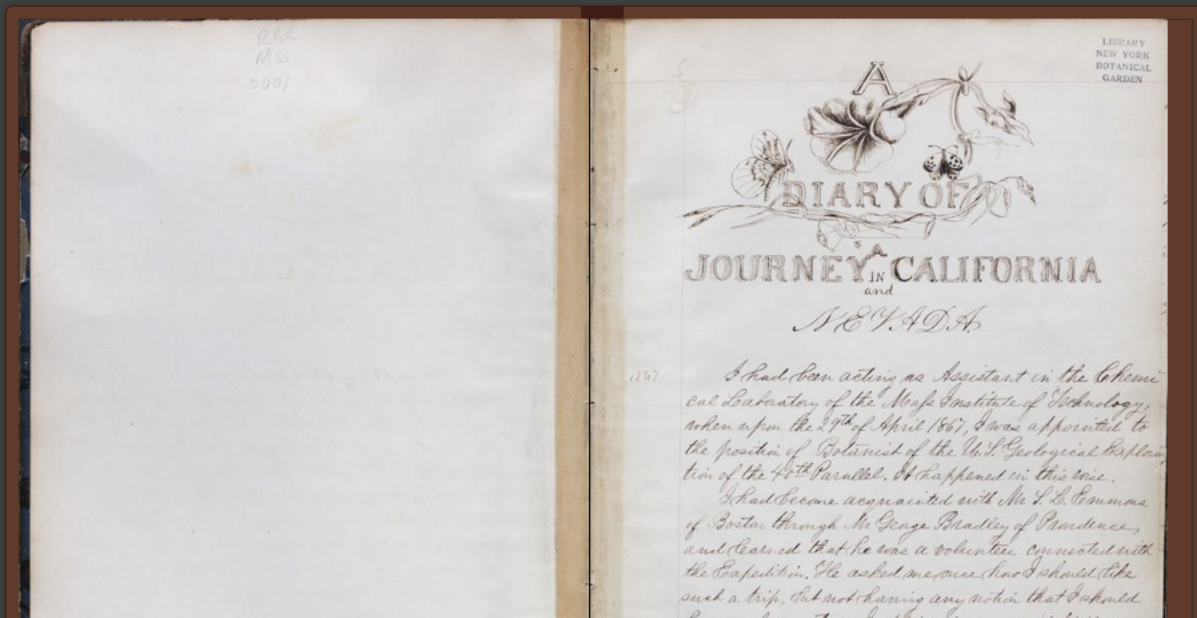 RBR
Mss
0001
LIBRARY
NEW YORK
BOTANICAL
GARDEN
A
DIARY OF
A
JOURNEY IN CALIFORNIA
and
NEVADA.
1867
I had been acting as Assistant in the Chemi
cal Laboratory of the Mass Institute of Technology,
when upon the 29th of April 1867, I was appointed to
the position of Botanist of the U.S. Geological Explora
tion of the 40th Parallel. It happened in this wise.
I had become acquainted with Mr S. F. Emmons
of Boston through Mr George Bradley of Providence,
and learned that he was a volunteer connected with
the Expedition. He asked me once how I should like
such a trip, but not having any notion that I should